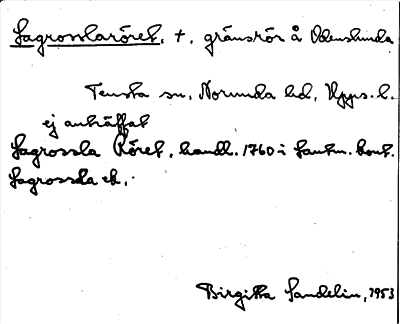 Lagrosslaröret, +, gränsrör å Odenslunda
Tensta sn, Norunda hd, Upps. l.
ej anträffat
Lagrossla Röret, handl. 1760 i Lantm. kont.
Lagrossla ek.
Birgitta Sandelin, 1953